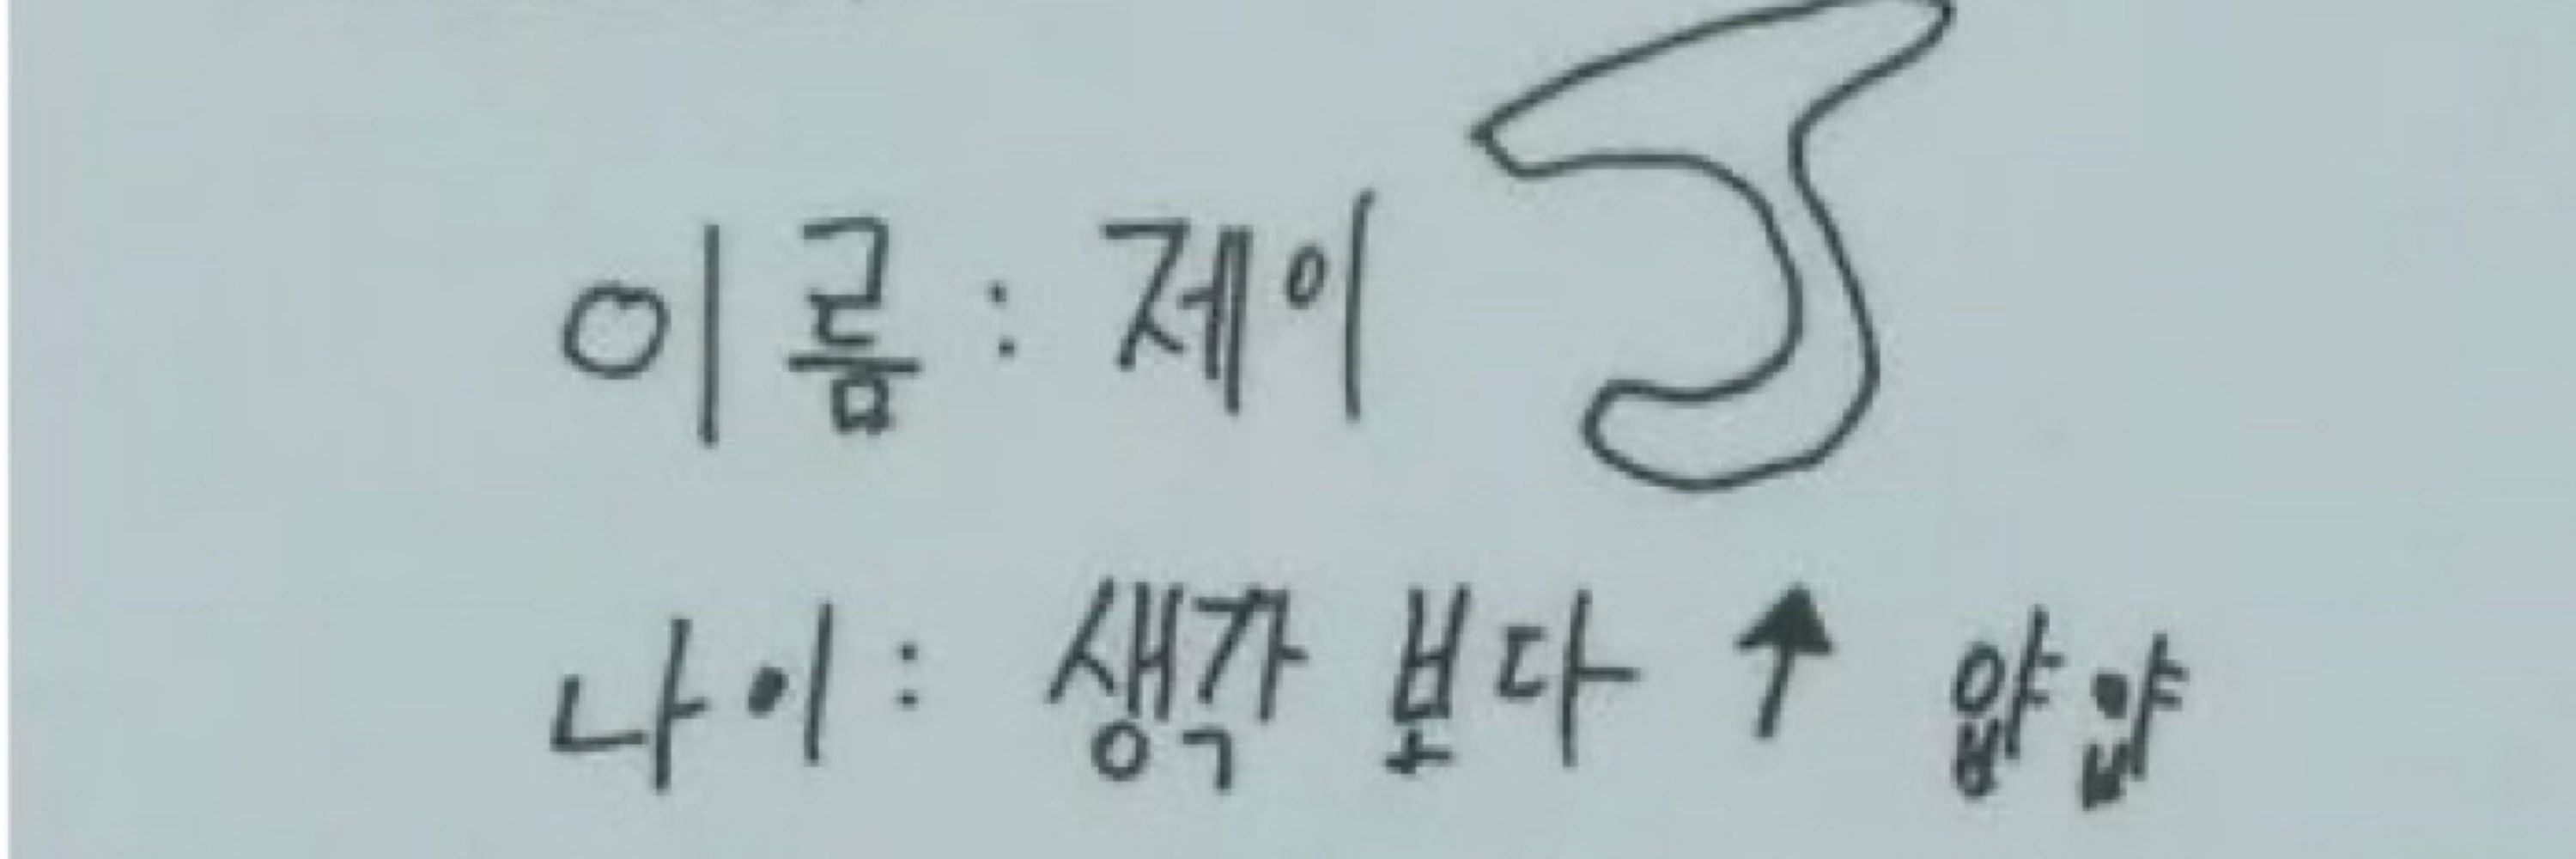 이름 : 제이 J
나이 : 생각 보다 ↑ 얍얍